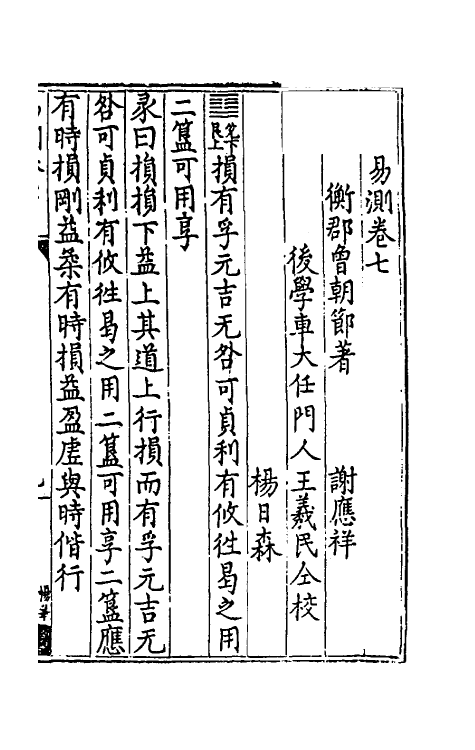 易測卷七
衡郡曾朝節著　謝應祥
後學車大任門人王羲民仝校
楊日森
䷨兊下艮上損有孚元吉无咎可貞利有攸徃曷之用
二簋可用享
彖曰損損下益上其道上行損而有孚元吉无
咎可貞利有攸徃曷之用二簋可用享二簋應
有時損剛益柔有時損益盈虛與時偕行